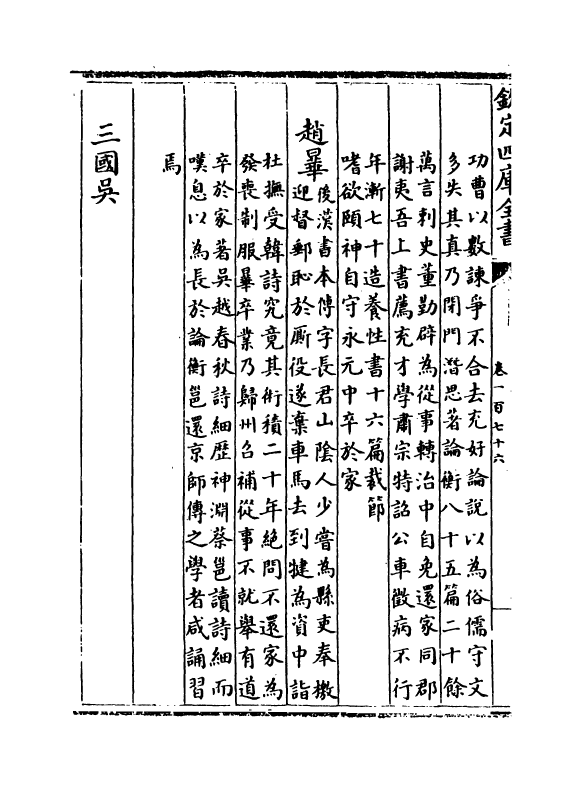 欽定四庫全書
卷一百七十六
功曹以數諫爭不合去充好論說以為俗儒守文
多失其真乃閉門潛思著論衡八十五篇二十餘
萬言刺史董勤辟為從事轉治中自免還家同郡
謝夷吾上書薦充才學肅宗特詔公車徵病不行
年漸七十造養性書十六篇裁節
嗜欲頤神自守永元中卒於家
趙曅
後漢書本傳字長君山陰人少嘗為縣吏奉檄
迎督郵恥於厮役遂棄車馬去到犍為資中詣
杜撫受韓詩究竟其術積二十年絕問不還家為
發喪制服曅卒業乃歸州召補從事不就舉有道
卒於家著吳越春秋詩細歷神淵蔡邕讀詩細而
嘆息以為長於論衡邕還京師傳之學者咸誦習
焉
三國吳